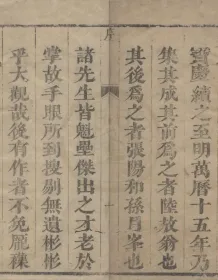 序
寶慶續之至明萬曆十五年乃
集其成其前爲之者陸放翁也
其後爲之者張陽和孫月峯也
諸先生皆魁壘傑出之才老於
掌故手眼所到搜剔無遺彬彬
乎大觀哉後有作者不免龎襍